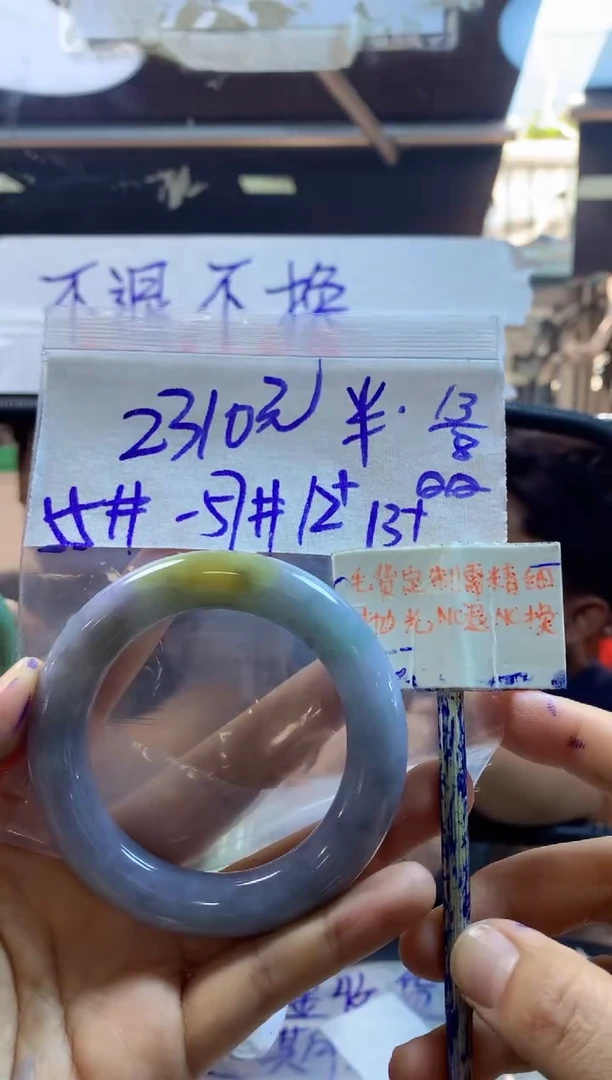 不退不换
2310元 半. 13/8
55# -57# 12+ 13+
毛货定制需精细
抛光NC退NC换